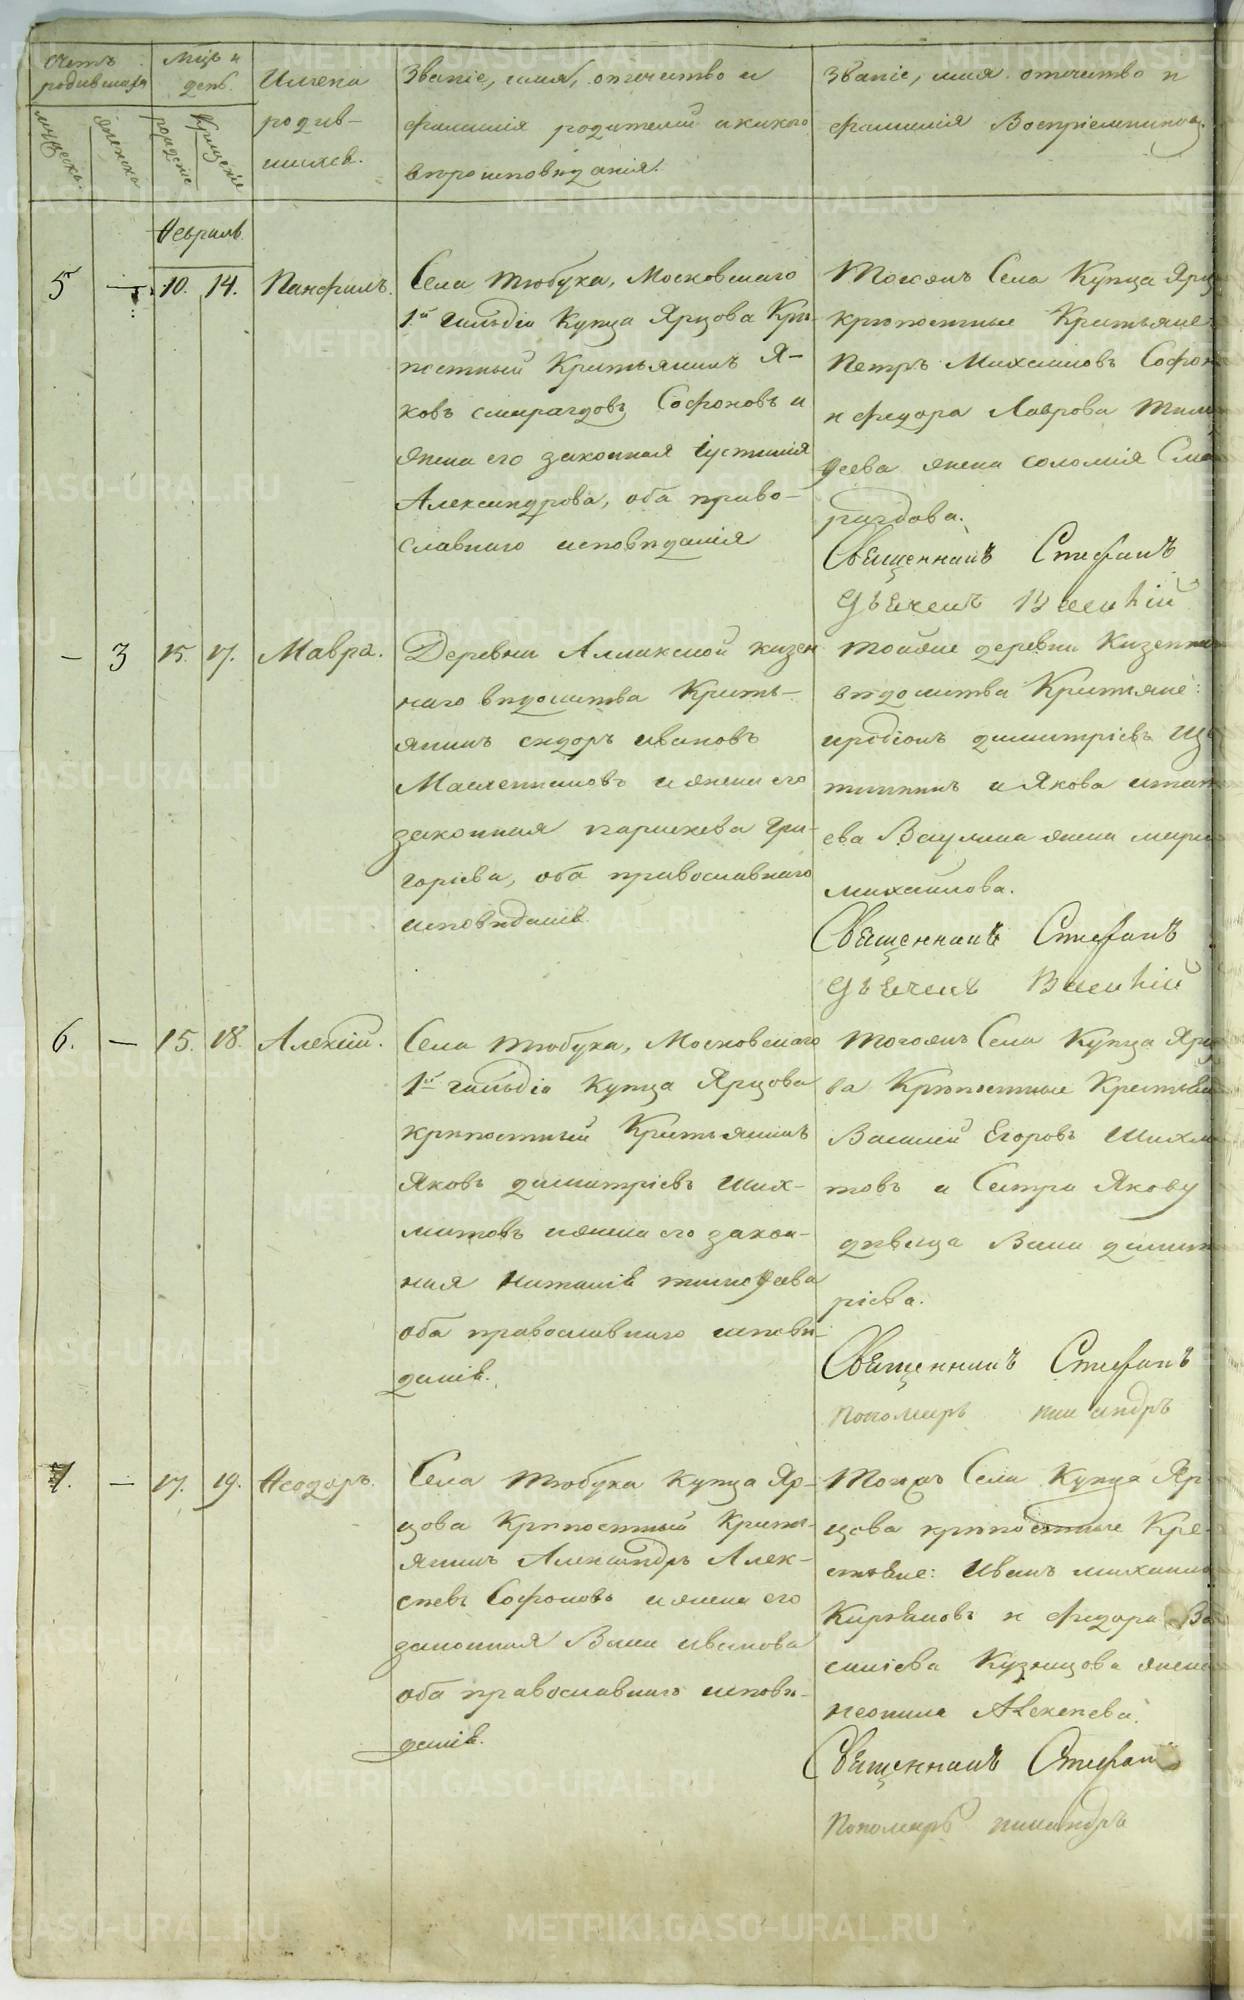 Счетъ родившихся
Мцъ и день.
Имена родив-
шихся.
Званіе, имя, отчество и
фамилія родителей и какого
вѣроисповѣданія.
Званіе, имя отчество и
фамилія Воспріемниковъ.
мужеска. женска рожденіе Крещеніе
Февраль
5 — 10. 14. Панфилъ.
Села Тюбука, Московскаго
1й гильдіи Купца Ярцова Крѣ-
постный Крестьянинъ Я-
ковъ Смарагдовъ Софоновъ и
жена его законная Іустинія
Александрова, оба право-
славнаго исповѣданія
Тогожъ Села Купца Ярцо
крѣпостные Крестьяне
Петръ Михаиловъ Софон
и Федора Лаврова Тимо
ѳеева жена Соломія Сма
рагдова.
Священникъ Стефанъ
Дьяченъ Василій
— 3 15. 17. Мавра.
Деревни Аллакской казен
наго вѣдомства Кресть-
янинъ Сидоръ Ивановъ
Масленниковъ и жена его
законная Параскева Гри-
горіева, оба православнаго
исповѣданія.
Тойже деревни Казенна
вѣдомства Крестьяне:
Иродіонъ Димитріевъ Щ
тининъ и Якова
ева Ваулина жена Мари
Михаилова.
Священникъ Стефанъ
Дьяченъ Василій
6. — 15. 18. Алексій.
Села Тюбука, Московскаго
1й гильдіи Купца Ярцова
крѣпостный Крестьянинъ
Яковъ Димитріевъ Ших-
матовъ и жена его закон-
ная Наталія Тимоѳеева
оба православнаго исповѣ-
данія.
Тогожъ Села Купца Ярцо
ва Крѣпостные Крестьян
Василій Егоровъ Шихма
товъ и Сестра Якову
дѣвица Васса Димит
ріева.
Священникъ Стефанъ
Пономарь Никандръ
7. — 17. 19. Ѳеодоръ.
Села Тюбука Купца Яр-
цова Крѣпостный Кресть-
янинъ Александръ Алек-
сѣевъ Софоновъ и жена его
законная Васса Иванова
оба православнаго исповѣ-
данія.
Тогожъ Села Купца Яр
цова крѣпостные Кре-
стьяне: Иванъ Михаило
Кирьяновъ и Федора Ва
силіева Кузнецова жена
Неонила Алексѣева.
Священникъ Стефанъ
Пономарь Никандръ
METRIKI.GASO-URAL.RU